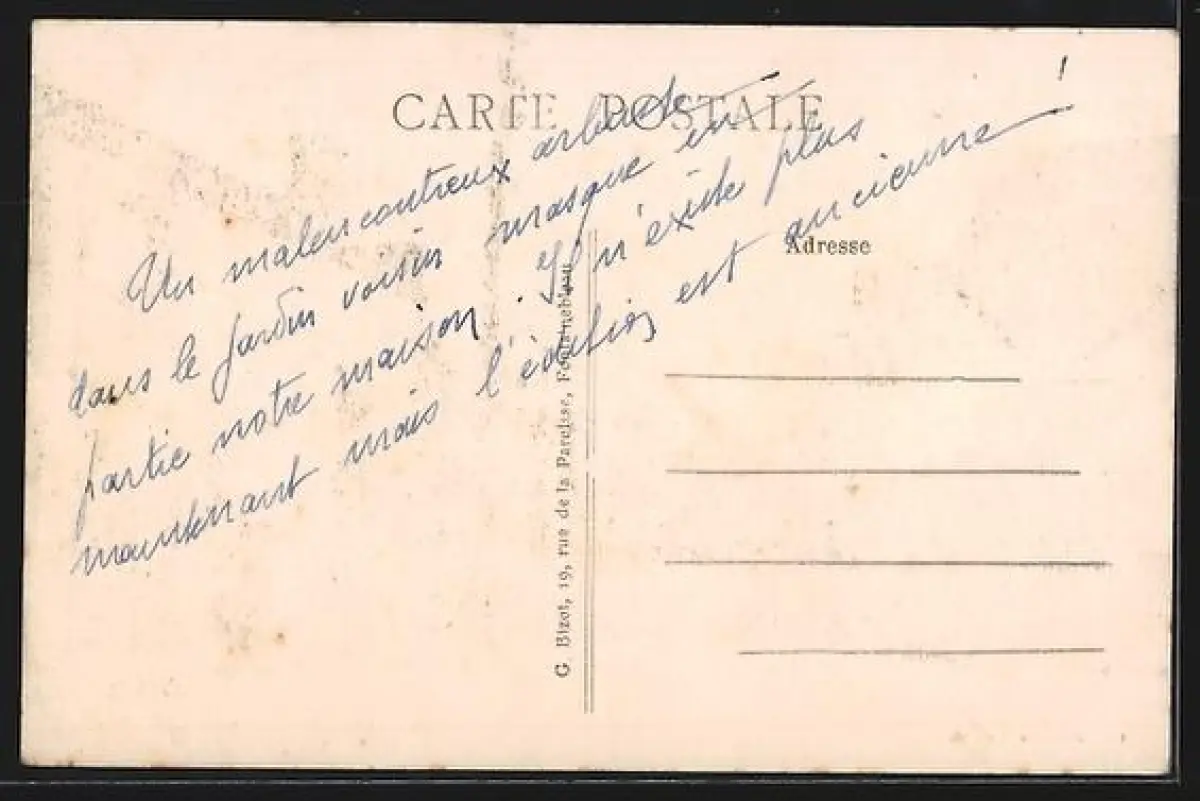 CARTE POSTALE
Un malencontreux arbuste
dans le jardin voisin masque en
partie notre maison. Il n'existe plus
maintenant mais l'édition est ancienne !
Adresse
G. Bizot, 19, rue de la Paroisse, Fontainebleau